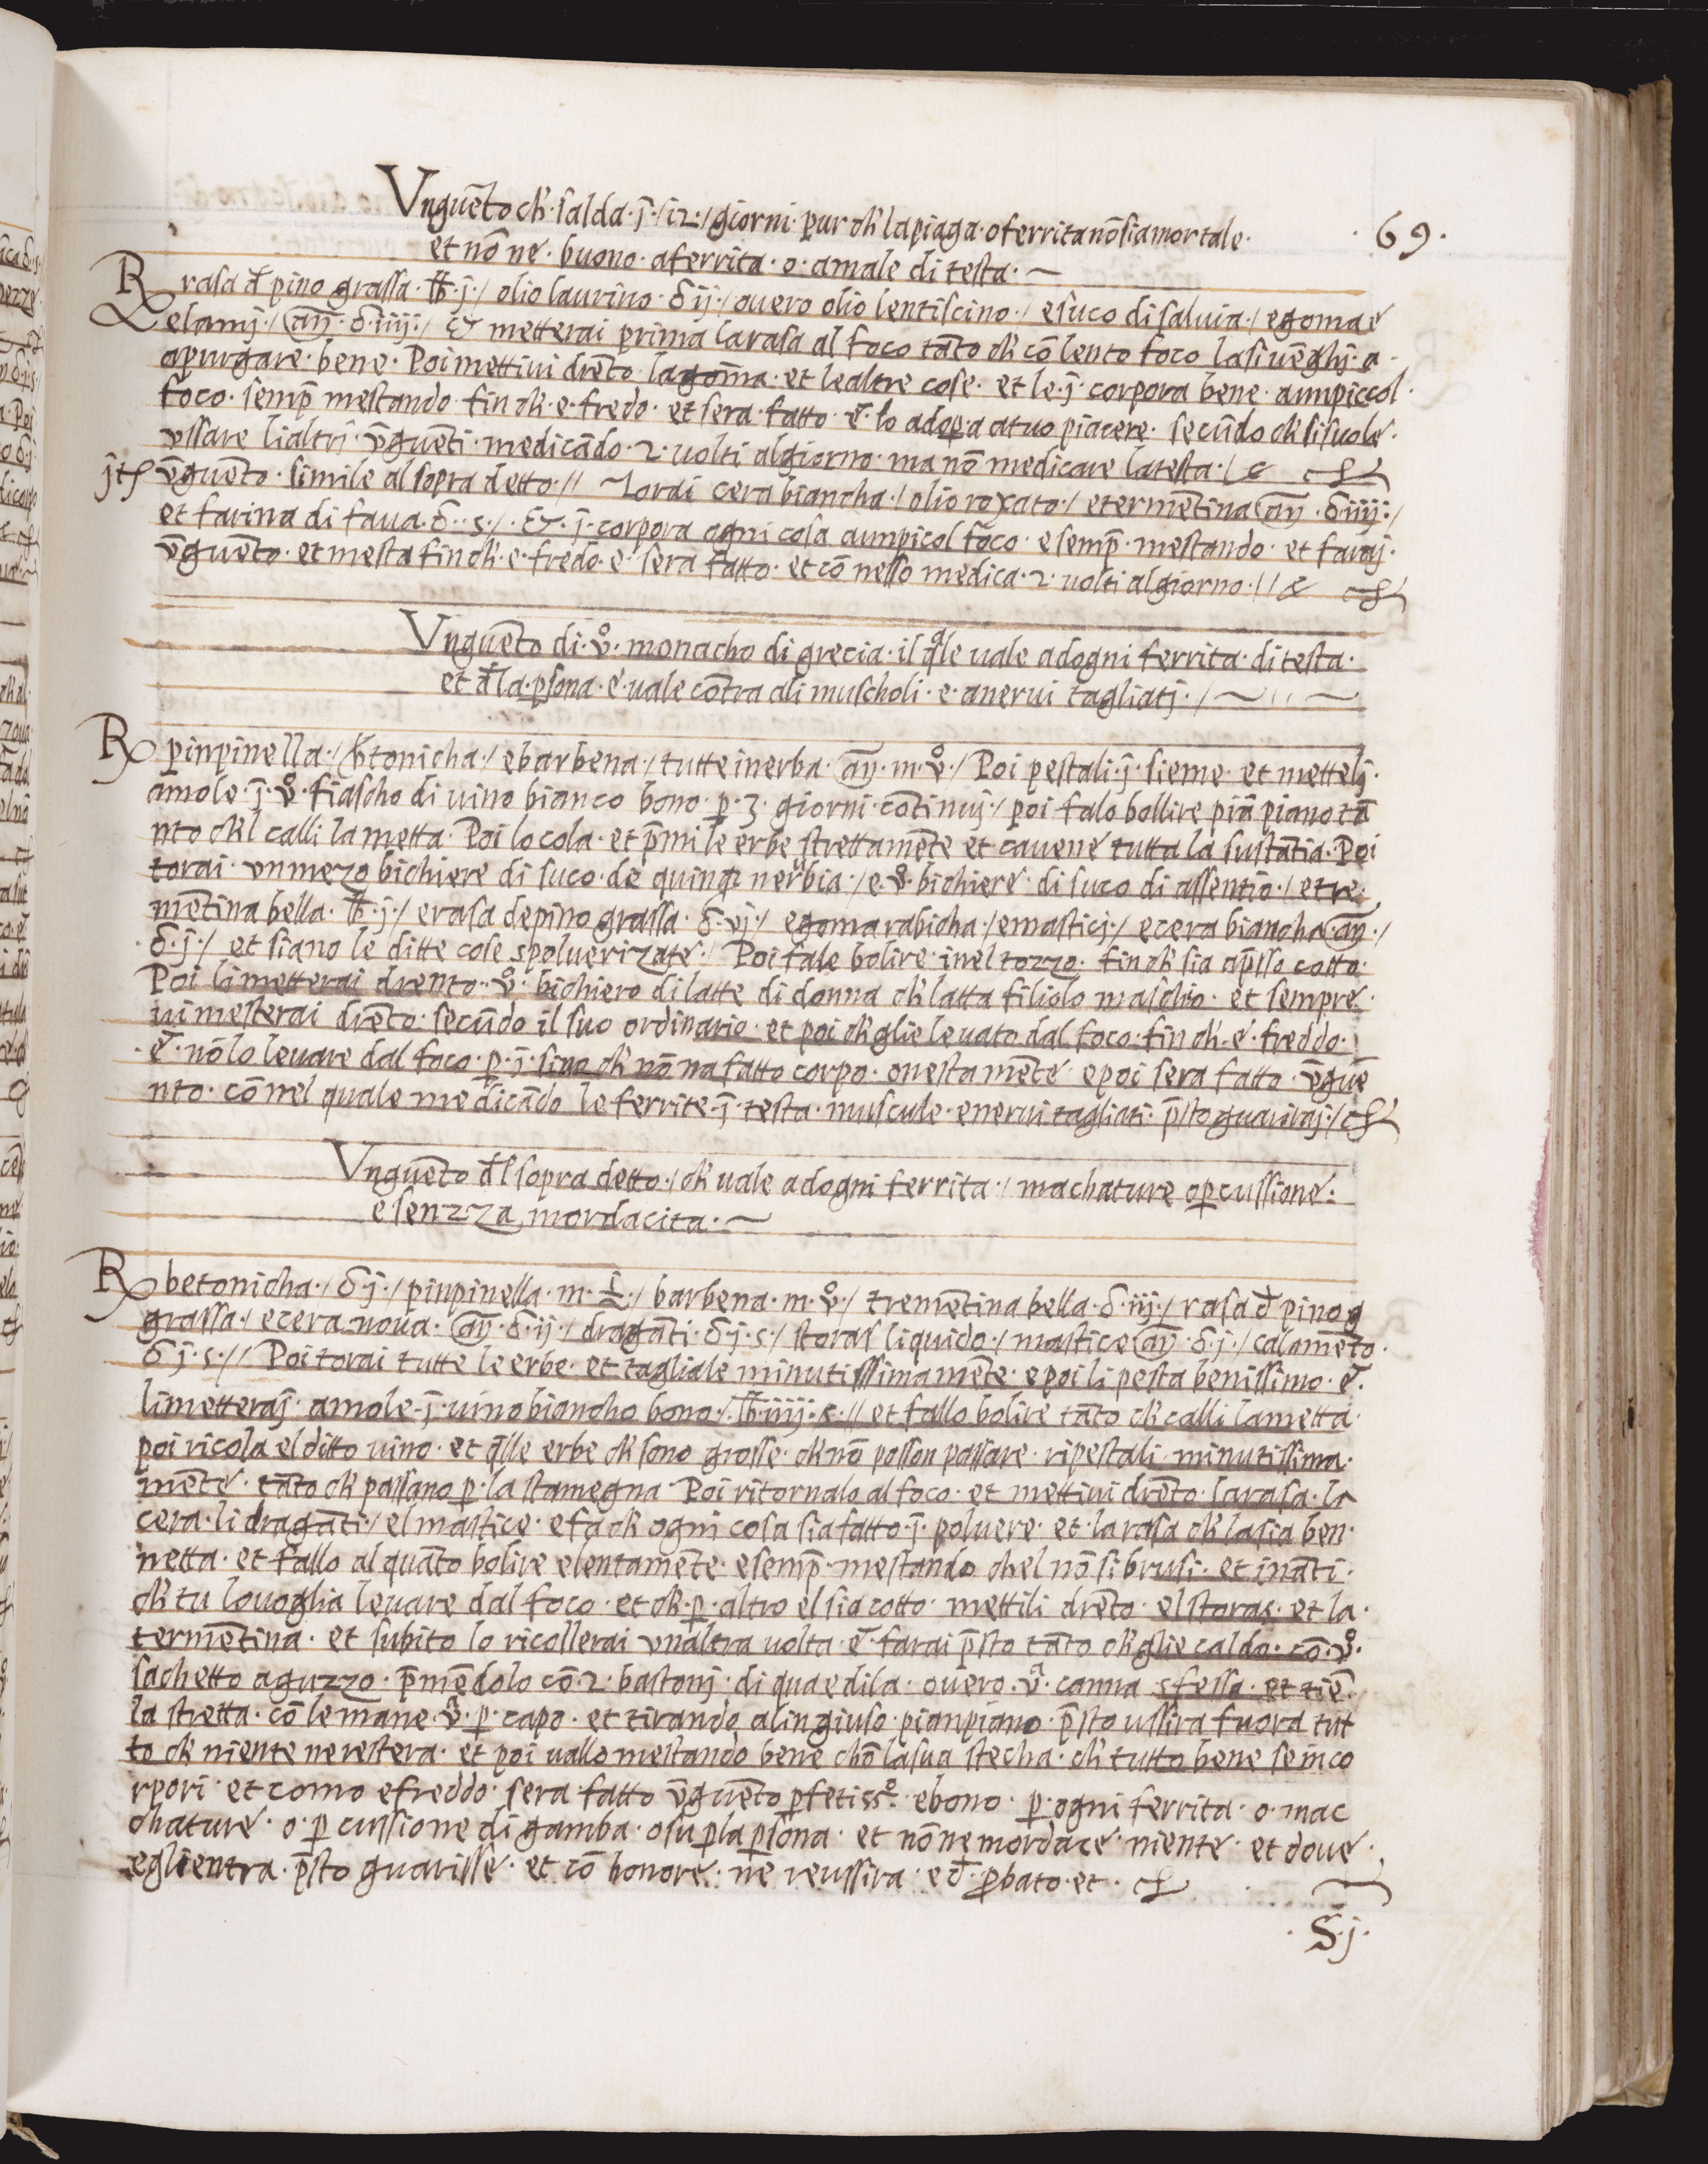 Vnguẽto ch̃ · salda · j̃ · / 12 · / giorni · pur ch̃ la piaga · o ferrita nõ sia mortale ·
· 69 ·
et nõ ne · buono · a ferrita · o · amale di testa · ~
R rasa đ pino grassa · ℔ · j · / olio laurino · δ ij · / ouero olio lentiscino · / e suco di saluia · / e goma e
elamj · / añ · δ · iiij · / Et metterai prima la rasa al foco tãto ch̃ cõ lento foco la si uẽghj · a ·
apurgare · bene · Poi mettiui drẽto la gom̃a · et le altre cose · et le · j̃ · corpora bene · aun piccol ·
foco · semp̃ mestando · fin ch̃ · e · fredo · et sera · fatto · e · lo adopa atuo piacere · secũdo ch̃ si suole ·
ussare li altri · ṽguenti · medicãdo · 2 · uolti al giorno · ma nõ medicare la testa · /
ṽguento · simile al sopra detto · // Torai cera biancha · / olio roxato · / e termẽtina añ · δ iiij · /
et farina di faua · δ · s · / · Et · j̃ · corpora ogni cosa aun picol foco · e semp̃ · mestando · et faraj ·
ṽguento · et mesta fin ch̃ · e · fredo · e · sera fatto · et cõ nesso medica · 2 · uolti al giorno · //
Vnguẽto di · v̊ · monacho di grecia · il q̃le uale ad ogni ferrita · di testa ·
et đ la · psona · e · uale cõtra ali muscholi · e · anerui tagliatj · / ~
R pinpinella · / btonicha · / e barbena · / tutte in erba · añ · m · v̊ · / Poi pestali · j̃ · sieme · et mettelj ·
amole · j̃ · v̊ · fiascho di uino bianco bono · p · 3 · giorni · cõtinuj · / poi falo bollire piã piano tã
nto ch̃l calli la metta · Poi lo cola · et p̃mi le erbe strettamẽte et cauene tutta la sustãtia · Poi
torai · vn mezo bichiere di suco · de quinq̃ nerbia · / e · v̊ · bichiere · di suco di assentio · / e tre
mẽtina bella · ℔ · j · / e rasa de pino grassa · δ · vj · / e goma rabicha · / e masticj · / e cera biancha añ · /
δ · j · / et siano le ditte cose spoluerizate · / Poi fale bolire · inel tozzo · fin ch̃ sia ap̃sso cotto ·
Poi li metterai drento · v̊ · bichiero di latte di donna ch̃ latta filiolo maschio · et sempre ·
ui mesterai drẽto · secũdo il suo ordinario · et poi ch̃ glie leuato dal foco · fin ch̃ · e · freddo ·
· e · nõ lo leuare dal foco · p · j̃ · sino ch̃ nõ na fatto corpo · onestamẽte · e poi sera fatto · ṽguẽ
nto · cõ nel quale medicãdo le ferrite · j̃ · testa · muscule · e nerui tagliati · p̃sto guariraj · /
Vnguẽto đl sopra detto · / ch̃ uale ad ogni ferrita · / machature o pcussione ·
e senzza mordacita · ~
R betonicha · / δ j · / pinpinella · m · / barbena · m · v̊ · / tremẽtina bella · δ · iij · / rasa đ pino g
grassa · / e cera noua · añ · δ · ij · / dragãti · δ · j · s · / storas liquido · / mastice añ · δ · j · / calamẽto ·
δ j · s · // Poi torai tutte le erbe · et tagliale minutissimamẽte · e poi li pesta benissimo · e ·
li metteraj · amole · j̃ · uino biancho bono · / ℔ · iiij · s · // et fallo bolire tãto ch̃ calli la metta ·
poi ricola el ditto uino · et q̃lle erbe ch̃ sono grosse · ch̃ nõ posson passare · ripestali · minutissima ·
mẽte · tãto ch̃ passano p · la stamegna · Poi ritornalo al foco · et mettiui drẽto · la rasa · la
cera · li dragãti · / el mastice · e fa ch̃ ogni cosa sia fatto · j̃ · poluere · et · la rasa ch̃ la sia ben ·
netta · et fallo al quãto bolire e lentamẽte · e semp̃ · mestando chel nõ si brusi · et inãti ·
ch̃ tu lo uoglia leuare dal foco · et ch̃ · p · altro el sia cotto · mettili drẽto · el storas · et la ·
termẽtina · et subito lo ricollerai vnaltra uolta · e · farai p̃sto tãto ch̃ glie caldo · cõ · v̊ ·
sachetto aguzzo · p̃mẽdolo cõ · 2 · bastonj · di qua e di la · ouero · vª · canna sfessa · et tiẽ ·
la stretta · cõ le mane · vª · p · capo · et tirando alingiuso · pianpiano · p̃sto ussira fuora tut
to ch̃ niente ne restera · et poi uallo mestando bene chõ la sua stecha · ch̃ tutto bene se inco
rpori · et como e freddo · sera · fatto ṽguẽto pfetissº · e bono · p · ogni ferrita · o · mac
chature · o · pcussione di gamba · o su pla psona · et nõ ne mordace · niente · et doue ·
egli entra · p̃sto guarisse · et cõ honore · ne reussira · e đ · pbato · et ·
· S · j ·